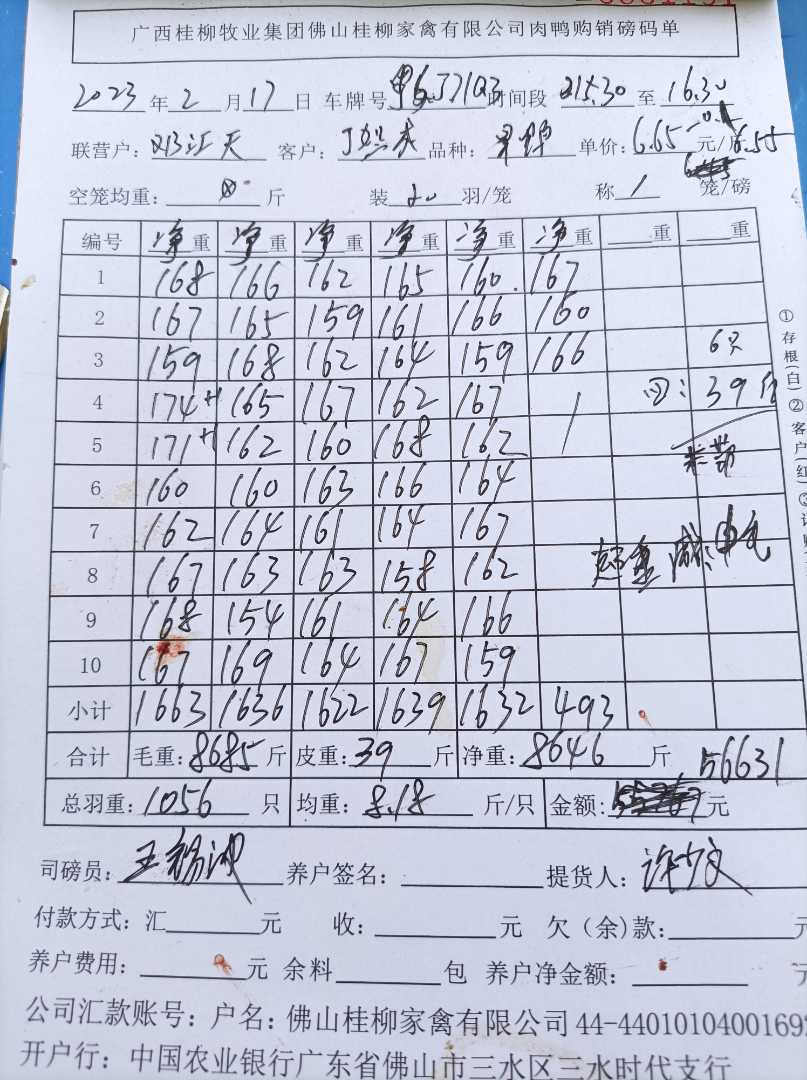 广西桂柳牧业集团佛山桂柳家禽有限公司肉鸭购销磅码单
2023 年 2 月 17 日 车牌号 时间段 15.30 至 16.30
联营户: 邓江天 客户: 品种: 单价: 6.65 元/斤 6.55
空笼均重: 0 斤 装 20 羽/笼 称 1 笼/磅
编号 净重 净重 净重 净重 净重 净重 重 重
1 168 166 162 165 160 167
2 167 165 159 161 166 160
3 159 168 162 164 159 166 6只
4 174+1 165 167 162 167 / 回: 39斤
5 171+1 162 160 168 162
6 160 160 163 166 164
7 162 164 161 164 167
8 167 163 163 158 162 超重减:
9 168 154 161 164 166
10 167 169 164 167 159
小计 1663 1636 1622 1639 1632 493
合计 毛重: 8685 斤 皮重: 39 斤 净重: 8646 斤 56631
总羽重: 1056 只 均重: 8.18 斤/只 金额: 元
司磅员: 王锡冲 养户签名: 提货人: 许少文
付款方式: 汇 元 收: 元 欠(余)款: 元
养户费用: 元 余料 包 养户净金额:
公司汇款账号: 户名: 佛山桂柳家禽有限公司 44-4401010400169
开户行: 中国农业银行广东省佛山市三水区三水时代支行
①存根(白)②客户(红)③